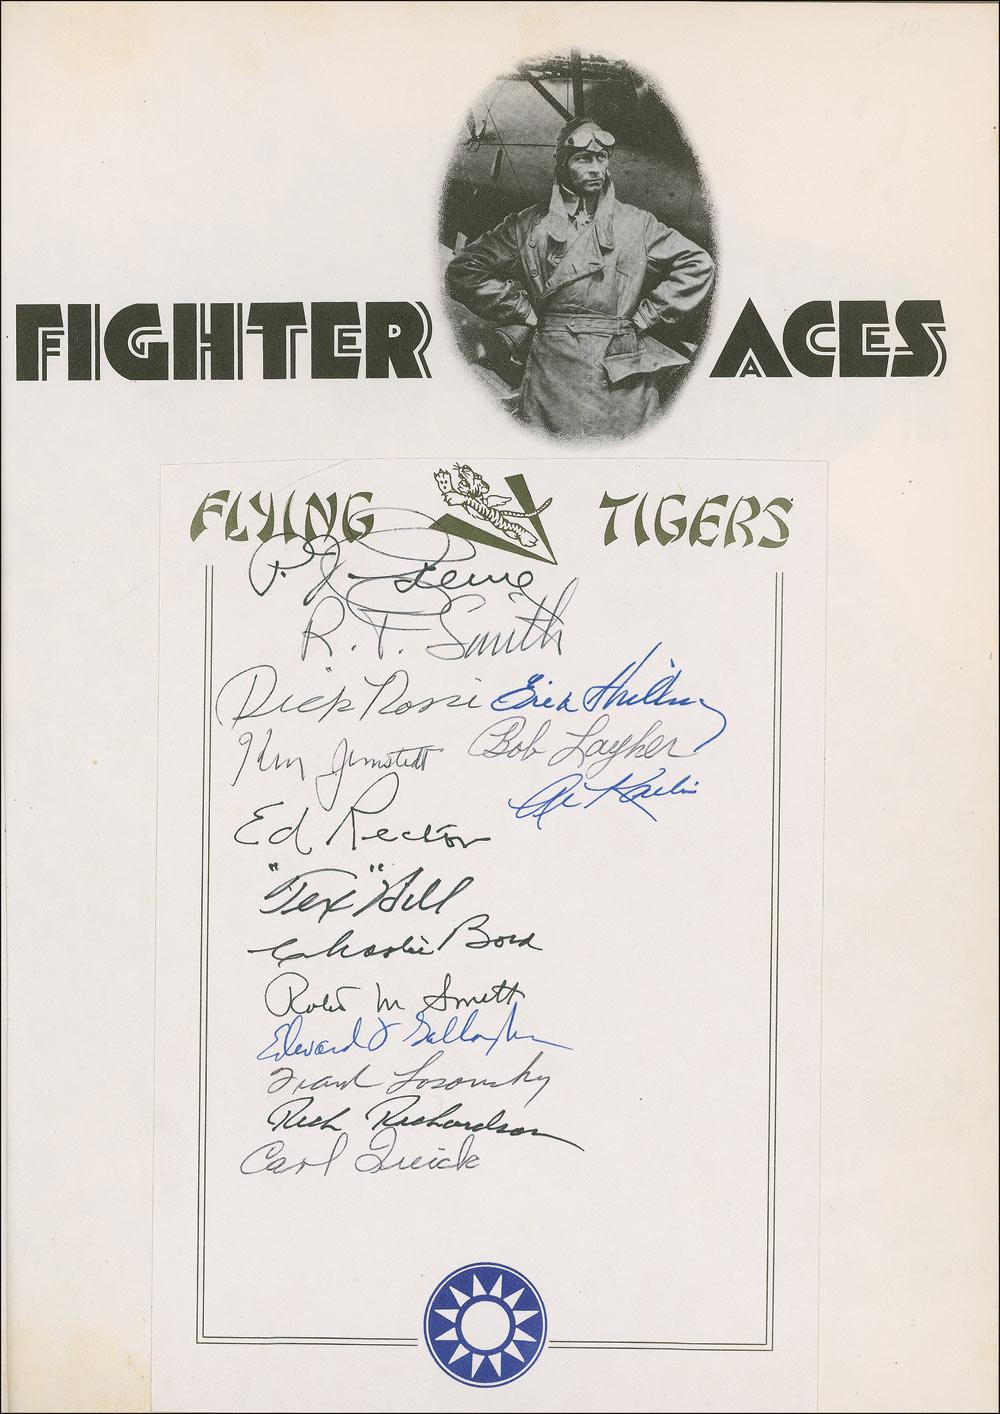 FIGHTER ACES
FLYING TIGERS
P. J. Greene
R. T. Smith
Dick Rossi
Erik Shilling
Ken Jernstedt
Bob Layher
Ed Rector
"Tex" Hill
Charlie Bond
Robt M Smith
Edward J Gallagher
Frank Losonsky
Rich Richardson
Carl Quick